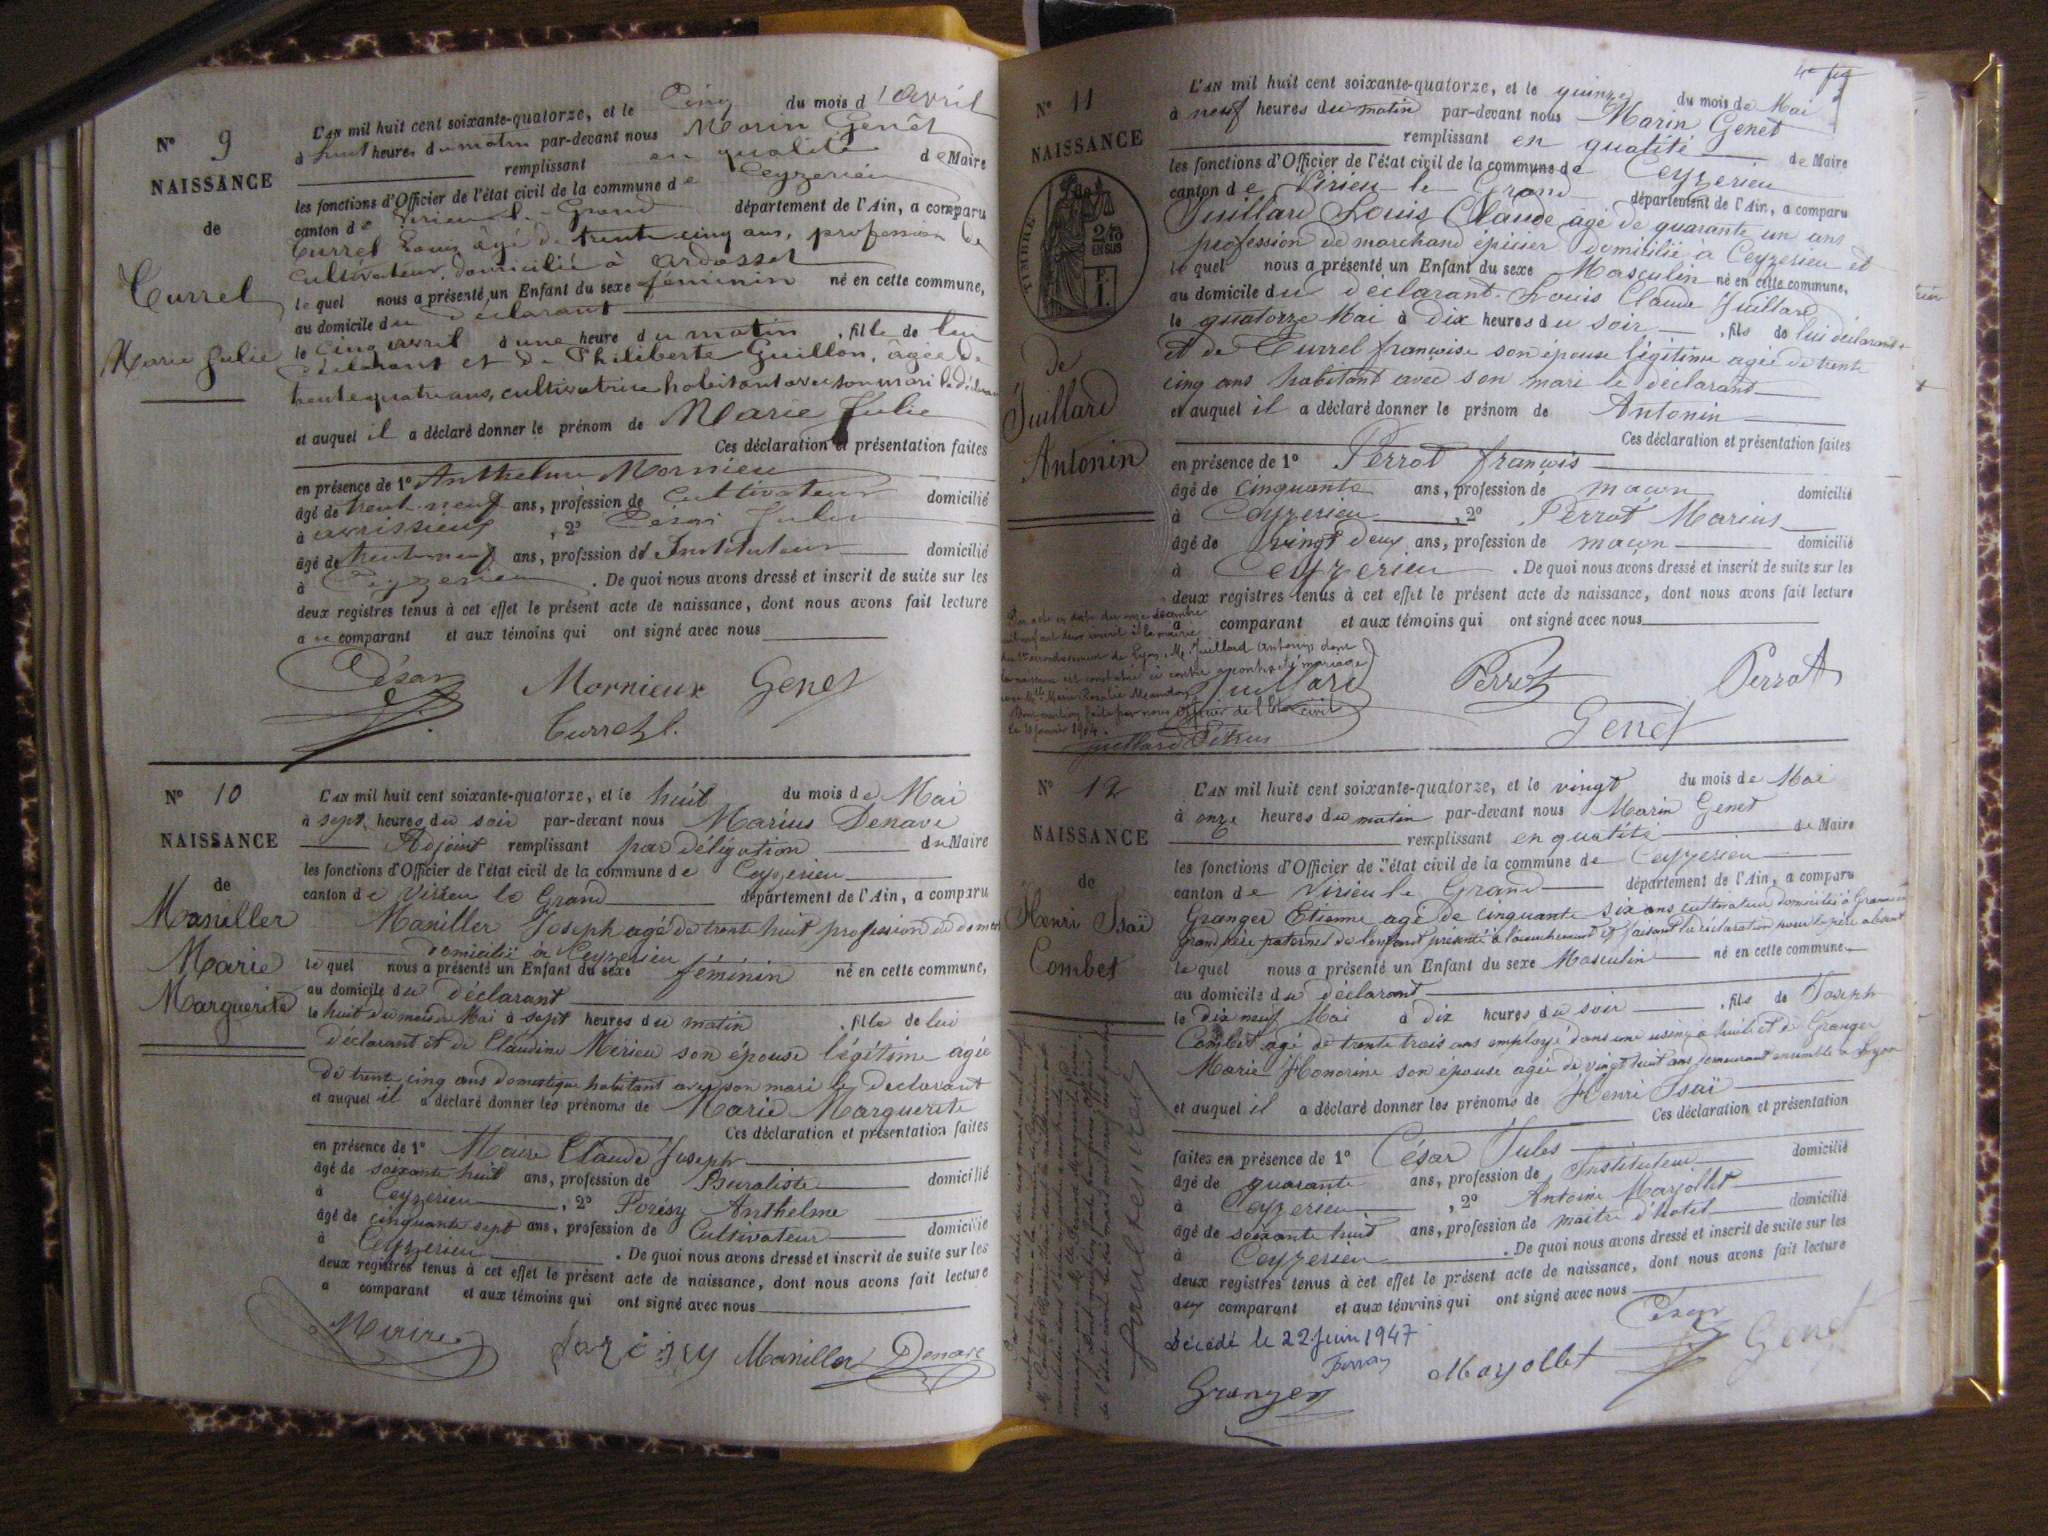 N° 9
NAISSANCE
de
Curret
Marie Julie
L'AN mil huit cent soixante-quatorze, et le Cinq du mois d'Avril
à huit heures du matin par-devant nous Marin Genêt
remplissant en qualité de Maire
les fonctions d'Officier de l'état civil de la commune de Ceyzerieu
canton de Virieu-le-Grand département de l'Ain, a comparu
Curret Louis âgé de trente cinq ans, profession de
Cultivateur, domicilié à Ardosset
lequel nous a présenté un Enfant du sexe féminin né en cette commune,
au domicile du déclarant
le cinq avril à une heure du matin, fille de lui
déclarant et de Philiberte Guillon, âgée de
trente quatre ans, cultivatrice habitant avec son mari le déclarant
et auquel il a déclaré donner le prénom de Marie Julie
Ces déclaration et présentation faites
en présence de 1° Anthelme Mornieux
âgé de trente-neuf ans, profession de Cultivateur domicilié
à avrissieux, 2° César Jules
âgé de trente-neuf ans, profession d'Instituteur domicilié
à Ceyzerieu. De quoi nous avons dressé et inscrit de suite sur les
deux registres tenus à cet effet le présent acte de naissance, dont nous avons fait lecture
au comparant et aux témoins qui ont signé avec nous
César Mornieux Genet
Curret L.
N° 10
NAISSANCE
de
Maniller
Marie
Marguerite
L'AN mil huit cent soixante-quatorze, et le huit du mois de Mai
à sept heures du soir par-devant nous Marius Denave
Adjoint remplissant par délégation du Maire
les fonctions d'Officier de l'état civil de la commune de Ceyzerieu
canton de Virieu le Grand département de l'Ain, a comparu
Maniller Joseph agé de trente huit profession de
domicilié à Ceyzerieu
lequel nous a présenté un Enfant du sexe féminin né en cette commune,
au domicile du déclarant
le huit du mois de Mai à sept heures du matin, fille de lui
déclarant et de Claudine Mérieu son épouse légitime agée
de trente cinq ans domestique habitant avec son mari le déclarant
et auquel il a déclaré donner les prénoms de Marie Marguerite
Ces déclaration et présentation faites
en présence de 1° Claude Joseph
âgé de soixante huit ans, profession de Buraliste domicilié
à Ceyzerieu, 2° Forésy Anthelme
âgé de cinquante sept ans, profession de Cultivateur domicilié
à Ceyzerieu. De quoi nous avons dressé et inscrit de suite sur les
deux registres tenus à cet effet le présent acte de naissance, dont nous avons fait lecture
a comparant et aux témoins qui ont signé avec nous
Maniller Denave
N° 11
NAISSANCE
TIMBRE
2/10
EN SUS
E.
1.
de
Juillard
Antonin
L'AN mil huit cent soixante-quatorze, et le quinze du mois de Mai
à neuf heures du matin par-devant nous Marin Genet
remplissant en qualité de Maire
les fonctions d'Officier de l'état civil de la commune de Ceyzerieu
canton de Virieu le Grand département de l'Ain, a comparu
Juillard Louis Claude âgé de quarante un ans
profession de marchand épicier domicilié à Ceyzerieu et
lequel nous a présenté un Enfant du sexe Masculin né en cette commune,
au domicile du déclarant Louis Claude Juillard
le quatorze Mai à Dix heures du soir, fils de lui déclarant
et de Curret françoise son épouse légitime agée de trente
cinq ans habitant avec son mari le déclarant
et auquel il a déclaré donner le prénom de Antonin
Ces déclaration et présentation faites
en présence de 1° Perrot françois
âgé de cinquante ans, profession de maçon domicilié
à Ceyzerieu, 2° Perrot Marius
âgé de vingt deux ans, profession de maçon domicilié
à Ceyzerieu. De quoi nous avons dressé et inscrit de suite sur les
deux registres tenus à cet effet le présent acte de naissance, dont nous avons fait lecture
a comparant et aux témoins qui ont signé avec nous
Par acte en date du onze décembre
mil neuf cent deux inscrit à la mairie
du arrondissement de Lyon, M. Juillard Antonin, dont
la naissance est constatée ci contre a contracté mariage
avec Mlle Marie Rosalie
Dont mention faite par nous Officier de l'Etat civil
Le janvier 1904.
Juillard Perrot Perrot
Genet
Juillard Petrus
N° 12
NAISSANCE
de
Henri Isaï
Combet
L'AN mil huit cent soixante-quatorze, et le vingt du mois de Mai
à onze heures du matin par-devant nous Marin Genet
remplissant en qualité de Maire
les fonctions d'Officier de l'état civil de la commune de Ceyzerieu
canton de Virieu le Grand département de l'Ain, a comparu
Granger Etienne agé de cinquante six ans cultivateur domicilié à
grand père paternel de l'enfant présenté à l'accouchement et faisant la déclaration pour le père absent
lequel nous a présenté un Enfant du sexe Masculin né en cette commune
au domicile du déclarant
le dix neuf Mai à dix heures du soir, fils de Joseph
Combet agé de trente trois ans employé dans une usine à huile et de Granger
Marie Honorine son épouse agée de vingt huit ans demeurant ensemble à Lyon
et auquel il a déclaré donner les prénoms de Henri Isaï
Ces déclaration et présentation
faites en présence de 1° César Jules domicilié
âgé de quarante ans, profession de Instituteur
à Ceyzerieu, 2° Antoine Mayollet
âgé de soixante huit ans, profession de maitre d'hôtel domicilié
à Ceyzerieu. De quoi nous avons dressé et inscrit de suite sur les
deux registres tenus à cet effet le présent acte de naissance, dont nous avons fait lecture
aux comparant et aux témoins qui ont signé avec nous
Décédé le 22 Juin 1947
César Genet
Mayollet
Granger